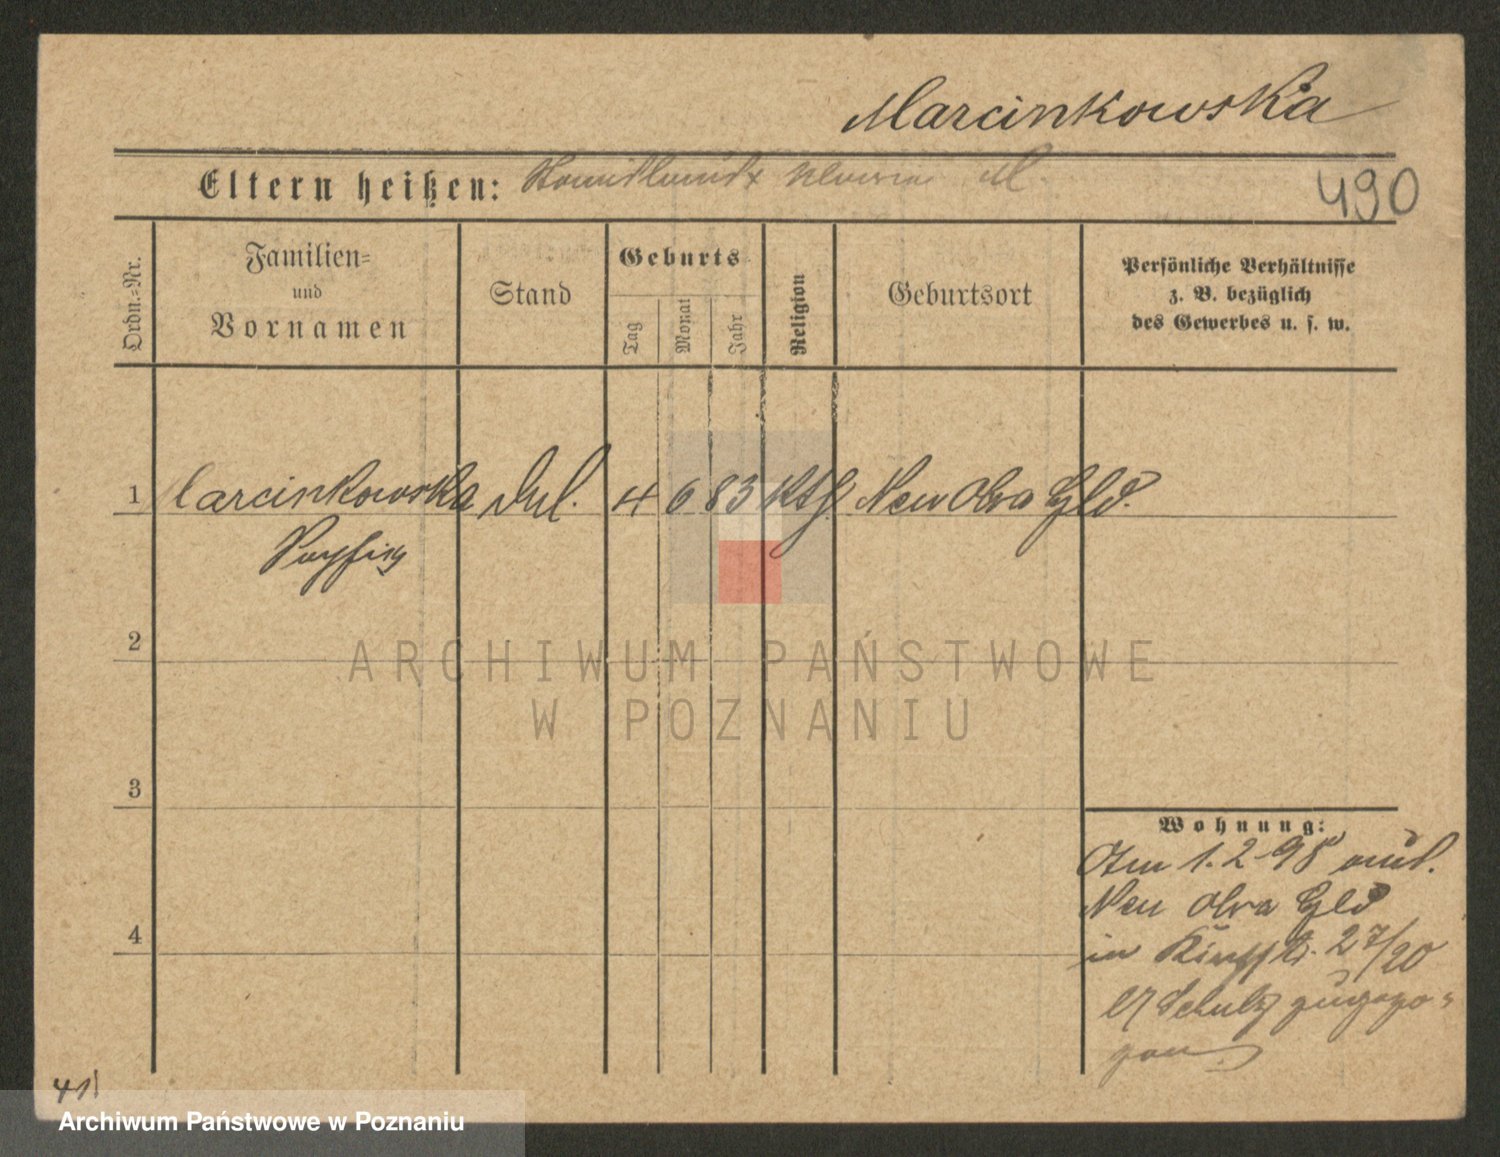 Marcinkowska
Eltern heißen: M.
490
Ordn.-Nr.
Familien-
und
Vornamen
Stand
Geburts
Tag
Monat
Jahr
Religion
Geburtsort
Persönliche Verhältnisse
z. B. bezüglich
des Gewerbes u. s. w.
1 Marcinkowska 4 6 83 Kth. Neu Obra
2
ARCHIWUM PAŃSTWOWE
W POZNANIU
3
Wohnung:
Am 1.2.98 aus
Neu Obra
4
in 27/20
b/ Schulz zugezo-
gen
41
Archiwum Państwowe w Poznaniu